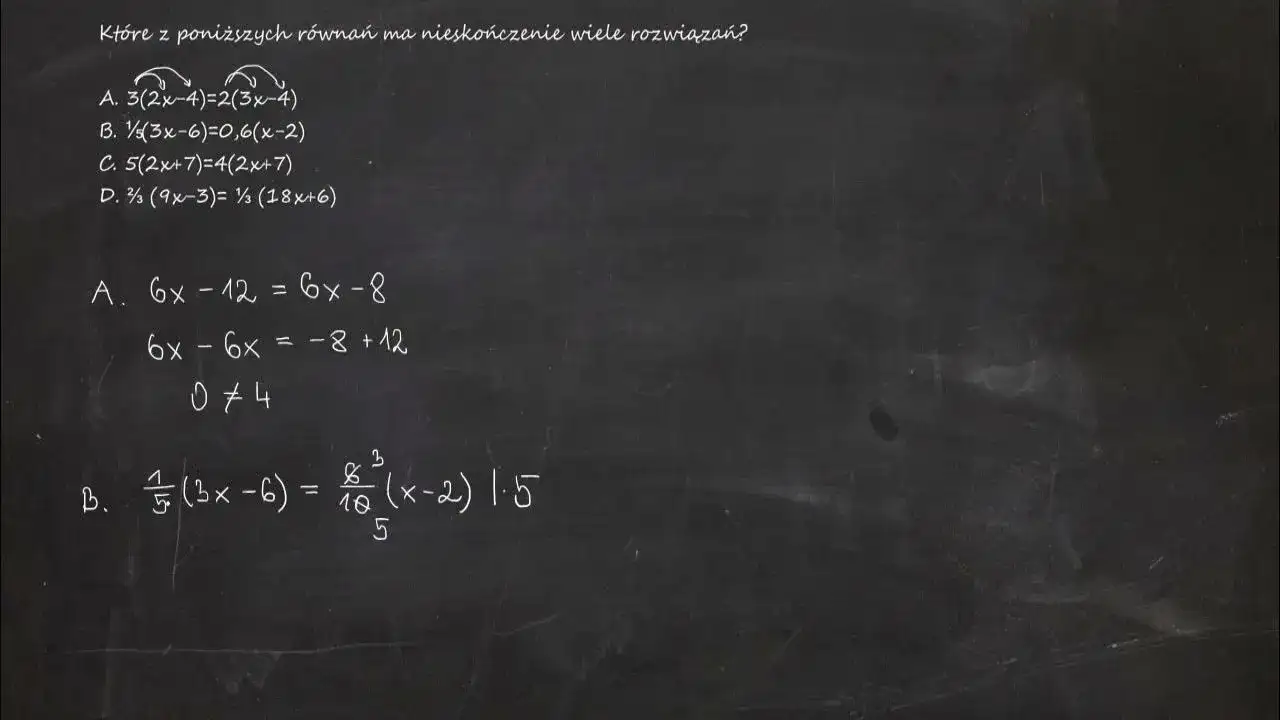 Które z poniższych równań ma nieskończenie wiele rozwiązań?
A. 3(2x-4)=2(3x-4)
B. ⅕(3x-6)=0,6(x-2)
C. 5(2x+7)=4(2x+7)
D. ⅔ (9x-3)= ⅓ (18x+6)
A. 6x - 12 = 6x - 8
6x - 6x = -8 + 12
0 ≠ 4
3
B. 1/5 (3x - 6) = 6/10 (x - 2) | · 5
5